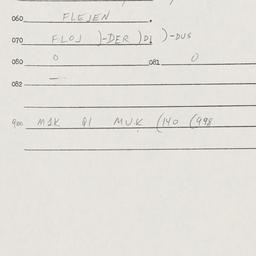 060 FLEJEN .
070 FLOJ )-DER )DI )-DUS
080 O 081 O
082 —
900 MIK QI MUK (140 (998